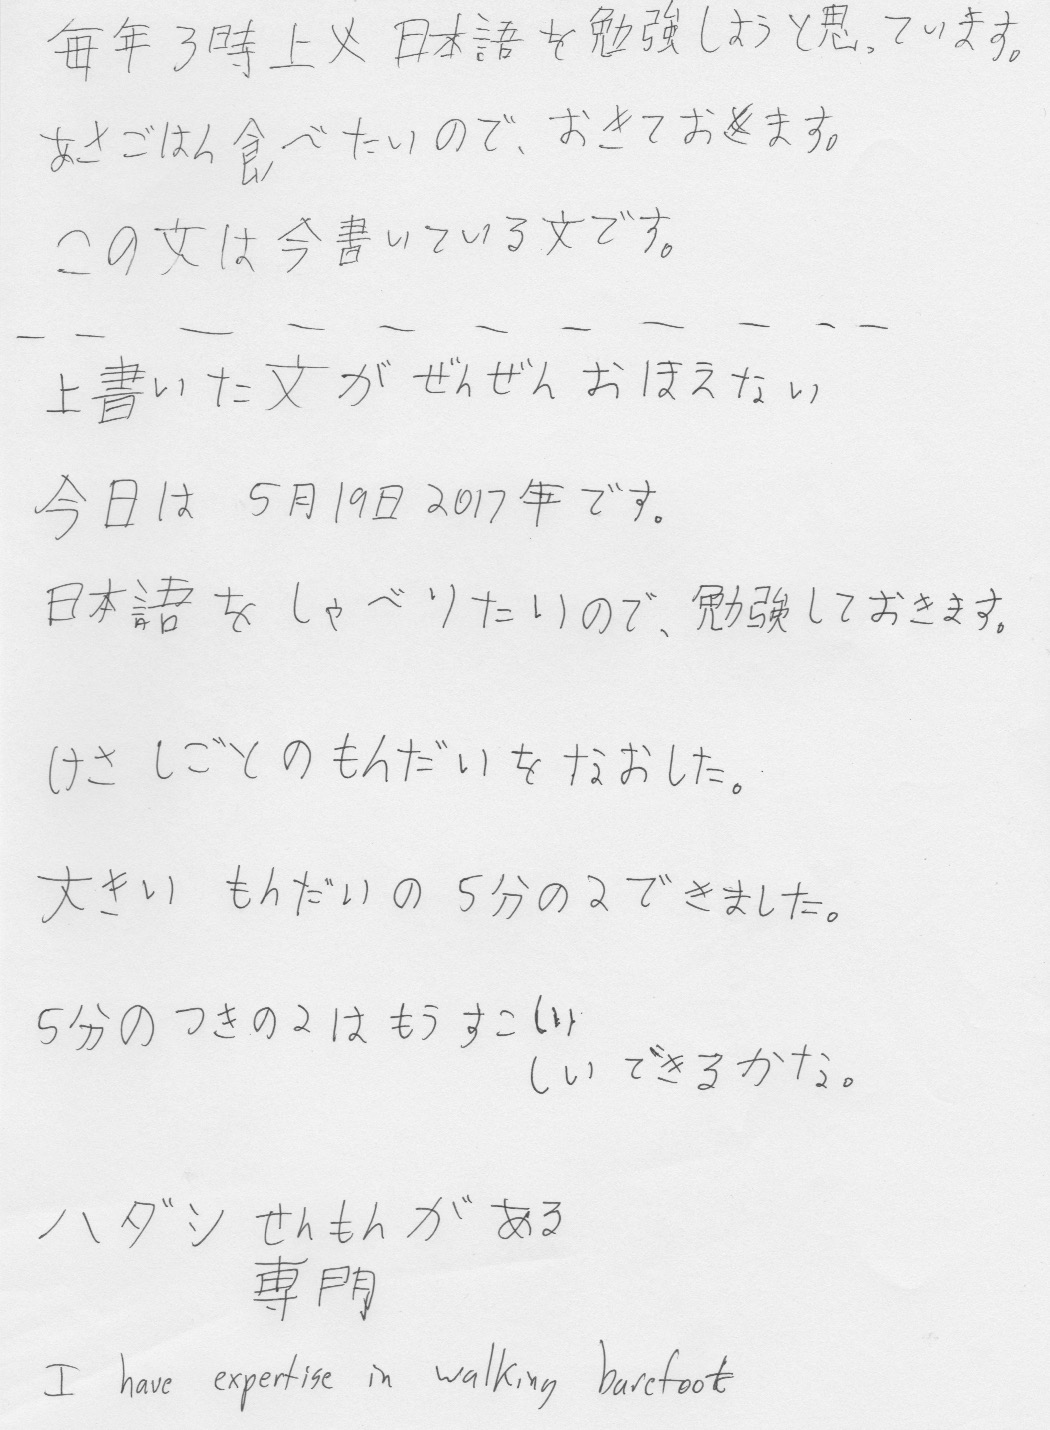 毎年3時上 日本語を勉強しようと思っています。
あさごはん食べたいので、おきておきます。
この文は今書いている文です。
上書いた文がぜんぜんおほえない
今日は 5月19日2017年です。
日本語をしゃべりたいので、勉強しておきます。
けさ しごとのもんだいをなおした。
大きい もんだいの 5分の2できました。
5分のつきの2はもうすこ
しいできるかな。
ハダシ せんもんがある
専門
I have expertise in walking barefoot